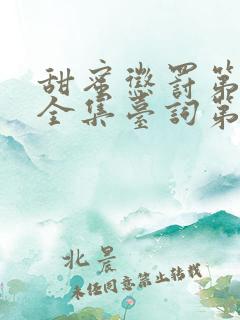 甜蜜懲罰第
全集臺詞第
北晨
未经同意禁止转载